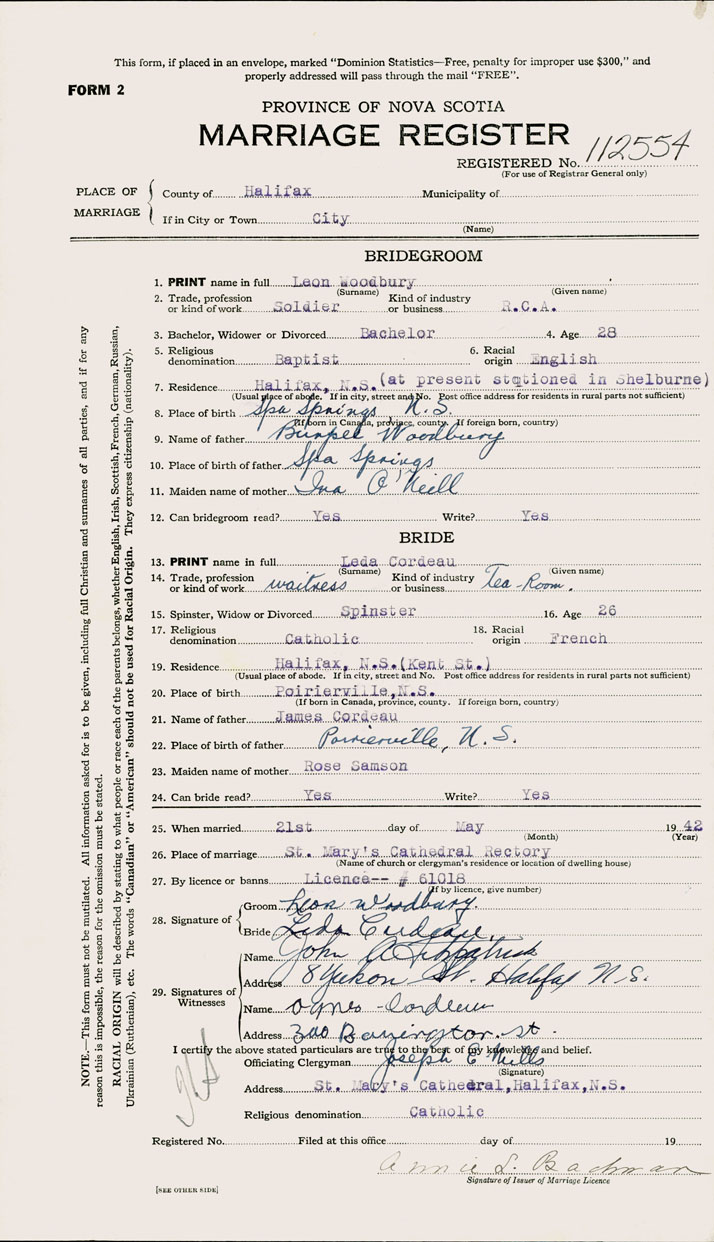 This form, if placed in an envelope, marked "Dominion Statistics—Free, penalty for improper use $300," and
properly addressed will pass through the mail "FREE".
FORM 2
PROVINCE OF NOVA SCOTIA
MARRIAGE REGISTER
REGISTERED No. 112554
(For use of Registrar General only)
PLACE OF MARRIAGE
County of Halifax Municipality of
If in City or Town City
(Name)
BRIDEGROOM
1. PRINT name in full Leon Woodbury
(Surname) (Given name)
2. Trade, profession or kind of work Soldier Kind of industry or business R.C.A.
3. Bachelor, Widower or Divorced Bachelor 4. Age 28
5. Religious denomination Baptist 6. Racial origin English
7. Residence Halifax, N.S. (at present stqtioned in Shelburne)
(Usual place of abode. If in city, street and No. Post office address for residents in rural parts not sufficient)
8. Place of birth Spa Springs N.S.
(If born in Canada, province, county. If foreign born, country)
9. Name of father Burpee Woodbury
10. Place of birth of father Spa Springs
11. Maiden name of mother Ina O'Neill
12. Can bridegroom read? Yes Write? Yes
BRIDE
13. PRINT name in full Leda Cordeau
(Surname) (Given name)
14. Trade, profession or kind of work waitress Kind of industry or business Tea-Room.
15. Spinster, Widow or Divorced Spinster 16. Age 26
17. Religious denomination Catholic 18. Racial origin French
19. Residence Halifax, N.S.(Kent St.)
(Usual place of abode. If in city, street and No. Post office address for residents in rural parts not sufficient)
20. Place of birth Poirierville,N.S.
(If born in Canada, province, county. If foreign born, country)
21. Name of father James Cordeau
22. Place of birth of father Poirierville, N.S.
23. Maiden name of mother Rose Samson
24. Can bride read? Yes Write? Yes
25. When married 21st day of May 1942
(Month) (Year)
26. Place of marriage St. Mary's Cathedral Rectory
(Name of church or clergyman's residence or location of dwelling house)
27. By licence or banns Licence-- # 61018
(If by licence, give number)
28. Signature of Groom Leon Woodbury.
Bride Leda Cordeau.
29. Signatures of Witnesses
Name John A Fitzpatrick
Address 8 Yukon St. Halifax N.S.
Name Agnes Cordeau
Address 300 Barrington. st.
I certify the above stated particulars are true to the best of my knowledge and belief.
Officiating Clergyman Joseph E Mills
(Signature)
Address St. Mary's Cathedral,Halifax,N.S.
Religious denomination Catholic
Registered No. Filed at this office day of 19
Annie L. Bachman
Signature of Issuer of Marriage Licence
[SEE OTHER SIDE]
NOTE.—This form must not be mutilated. All information asked for is to be given, including full Christian and surnames of all parties, and if for any
reason this is impossible, the reason for the omission must be stated.
RACIAL ORIGIN will be described by stating to what people or race each of the parents belongs, whether English, Irish, Scottish, French, German, Russian,
Ukrainian (Ruthenian), etc. The words "Canadian" or "American" should not be used for Racial Origin. They express citizenship (nationality).